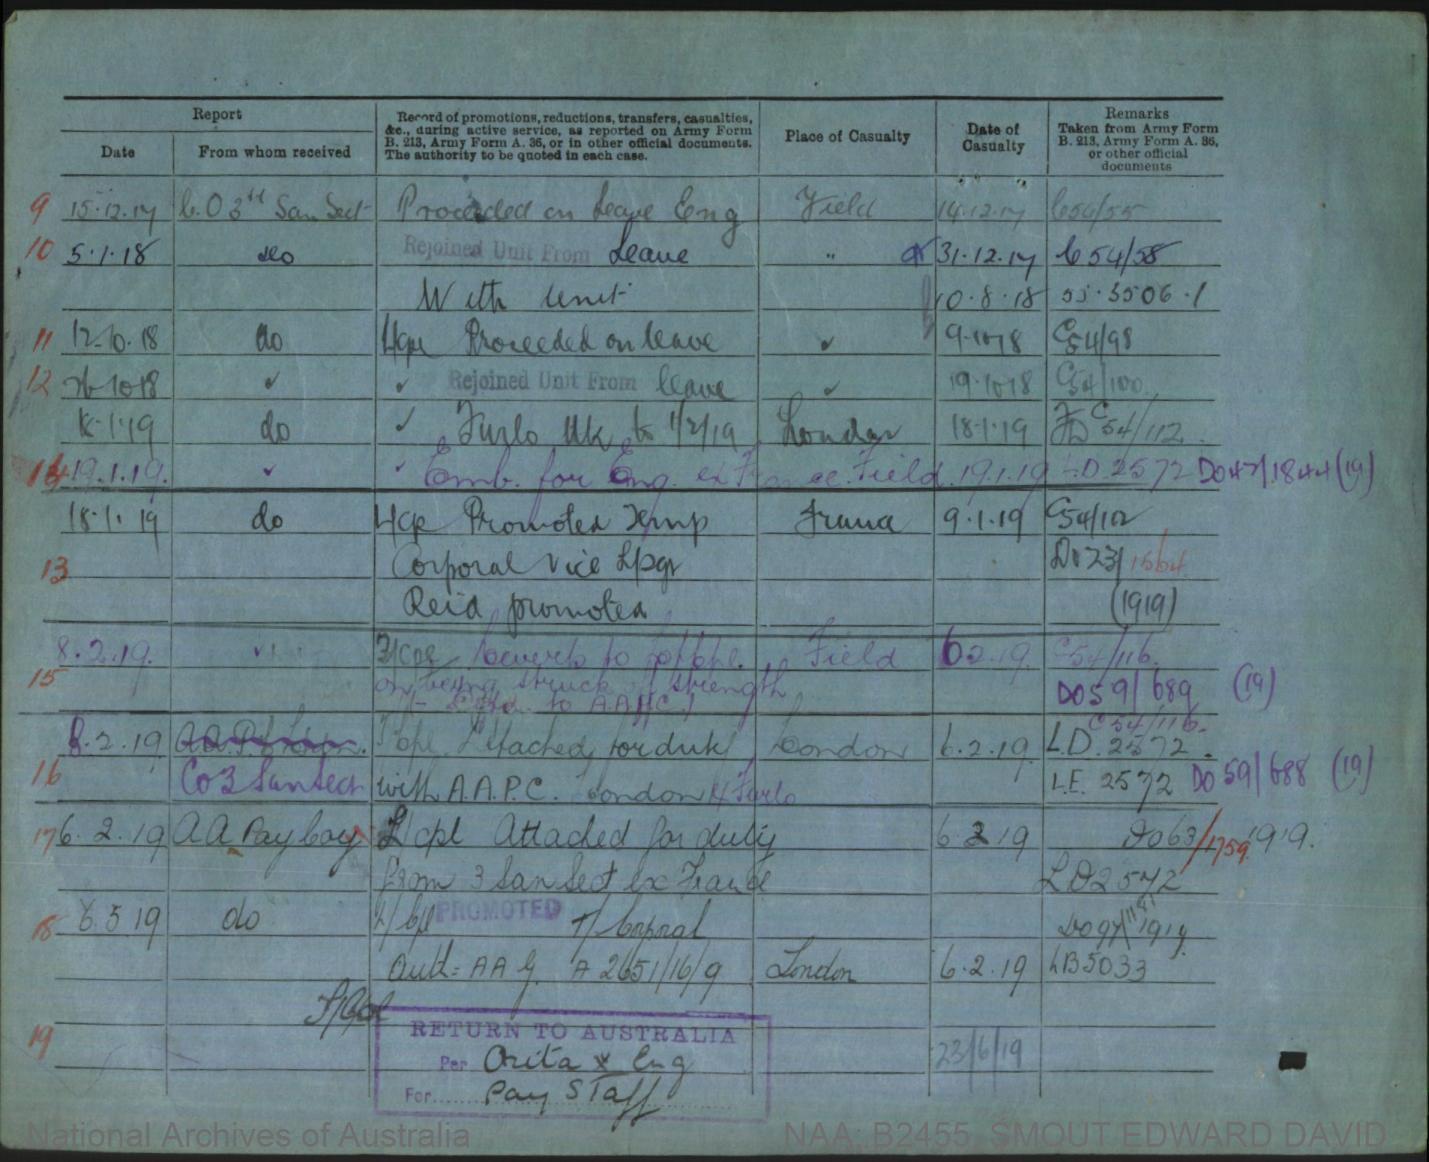 Report
Date
From whom received
Record of promotions, reductions, transfers, casualties,
&c., during active service, as reported on Army Form
B. 213, Army Form A. 36, or in other official documents.
The authority to be quoted in each case.
Place of Casualty
Date of
Casualty
Remarks
Taken from Army Form
B. 213, Army Form A. 36,
or other official
documents
9 15.12.17 C.O 3rd San Sect Proceeded on Leave Eng Field 14.12.17 C54/55
10 5.1.18 do Rejoined Unit From Leave " 31.12.17 C54/58
With Unit 10.8.18 55.3506.1
11 12.10.18 do L/Cpl Proceeded on leave 9.10.18 C54/98
12 26.10.18 Rejoined Unit From leave 19.10.18 C54/100
18.1.19 do Furlo UK to 1/2/19 London 18.1.19 C54/112
14 19.1.19. Emb. for Eng. ex France. Field. 19.1.19 L.D. 2572 DO47/1844 (19)
18.1.19 do L/Cpl Promoted Temp France 9.1.19 C54/112
13 Corporal vice L/Sgt DO 23/1564
Reid promoted (1919)
8.2.19. reverts to Field 6.2.19. C54/116.
15 on being struck off strength DO59/689 (19)
to A.A.P.C.)
C54/116.
8.2.19 Attached for duty London 6.2.19. L.D. 2572.
16 Co 3 San Sect with A.A.P.C. London Furlo L.E. 2572 DO 59/688 (19)
17 6.2.19 A A Pay Corp L/cpl Attached for duty 6 2 19 Do63/1759 1919.
from 3 San Sect Ex France LD2572
18 6.5.19 do L/Cpl PROMOTED T/Corporal Do97/ 1919.
Auth: AAG A2651/16/9 London 6.2.19 LB5033
T/Cpl
RETURN TO AUSTRALIA
19 Per Orita x Eng 23/6/19
For Pay Staff
National Archives of Australia
NAA: B2455, SMOUT EDWARD DAVID